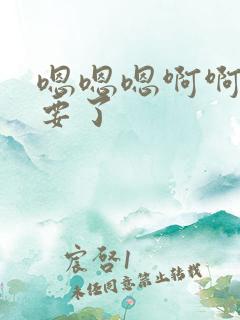 嗯嗯嗯啊啊
要了
宸启1
未经同意禁止转载